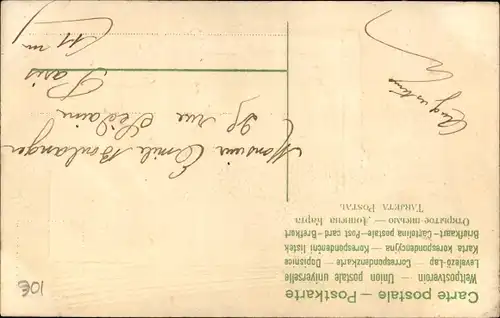 Carte postale — Postkarte
Weltpostverein — Union postale universelle
Levelező-Lap — Correspondenzkarte — Dopisnice
Karta korespondencyjna — Korespondenční listek
Briefkaart — Cartolina postale — Post card — Brefkort
Открытое письмо — Дописна Карта
Tarjeta Postal
Monsieur Emile Boulanger
29 rue Sedaine
Paris
(11 m
Augustine
10€